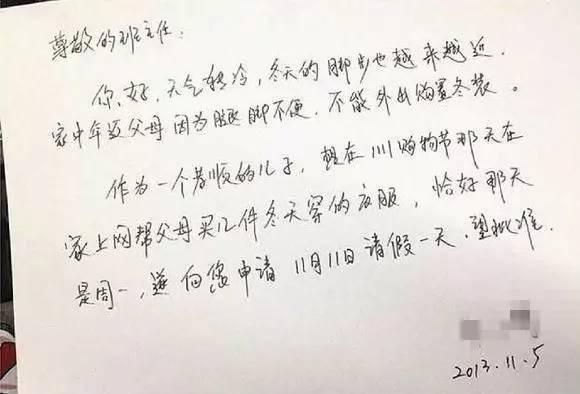 尊敬的班主任:
你好,天气转冷,冬天的脚步也越来越近.
家中年迈父母因为腿脚不便,不能外出购置冬装。
作为一个孝顺的儿子,想在1111购物节那天在
家上网帮父母买几件冬天穿的衣服,恰好那天
是周一,遂向您申请11月11日请假一天.望批准.
2013.11.5